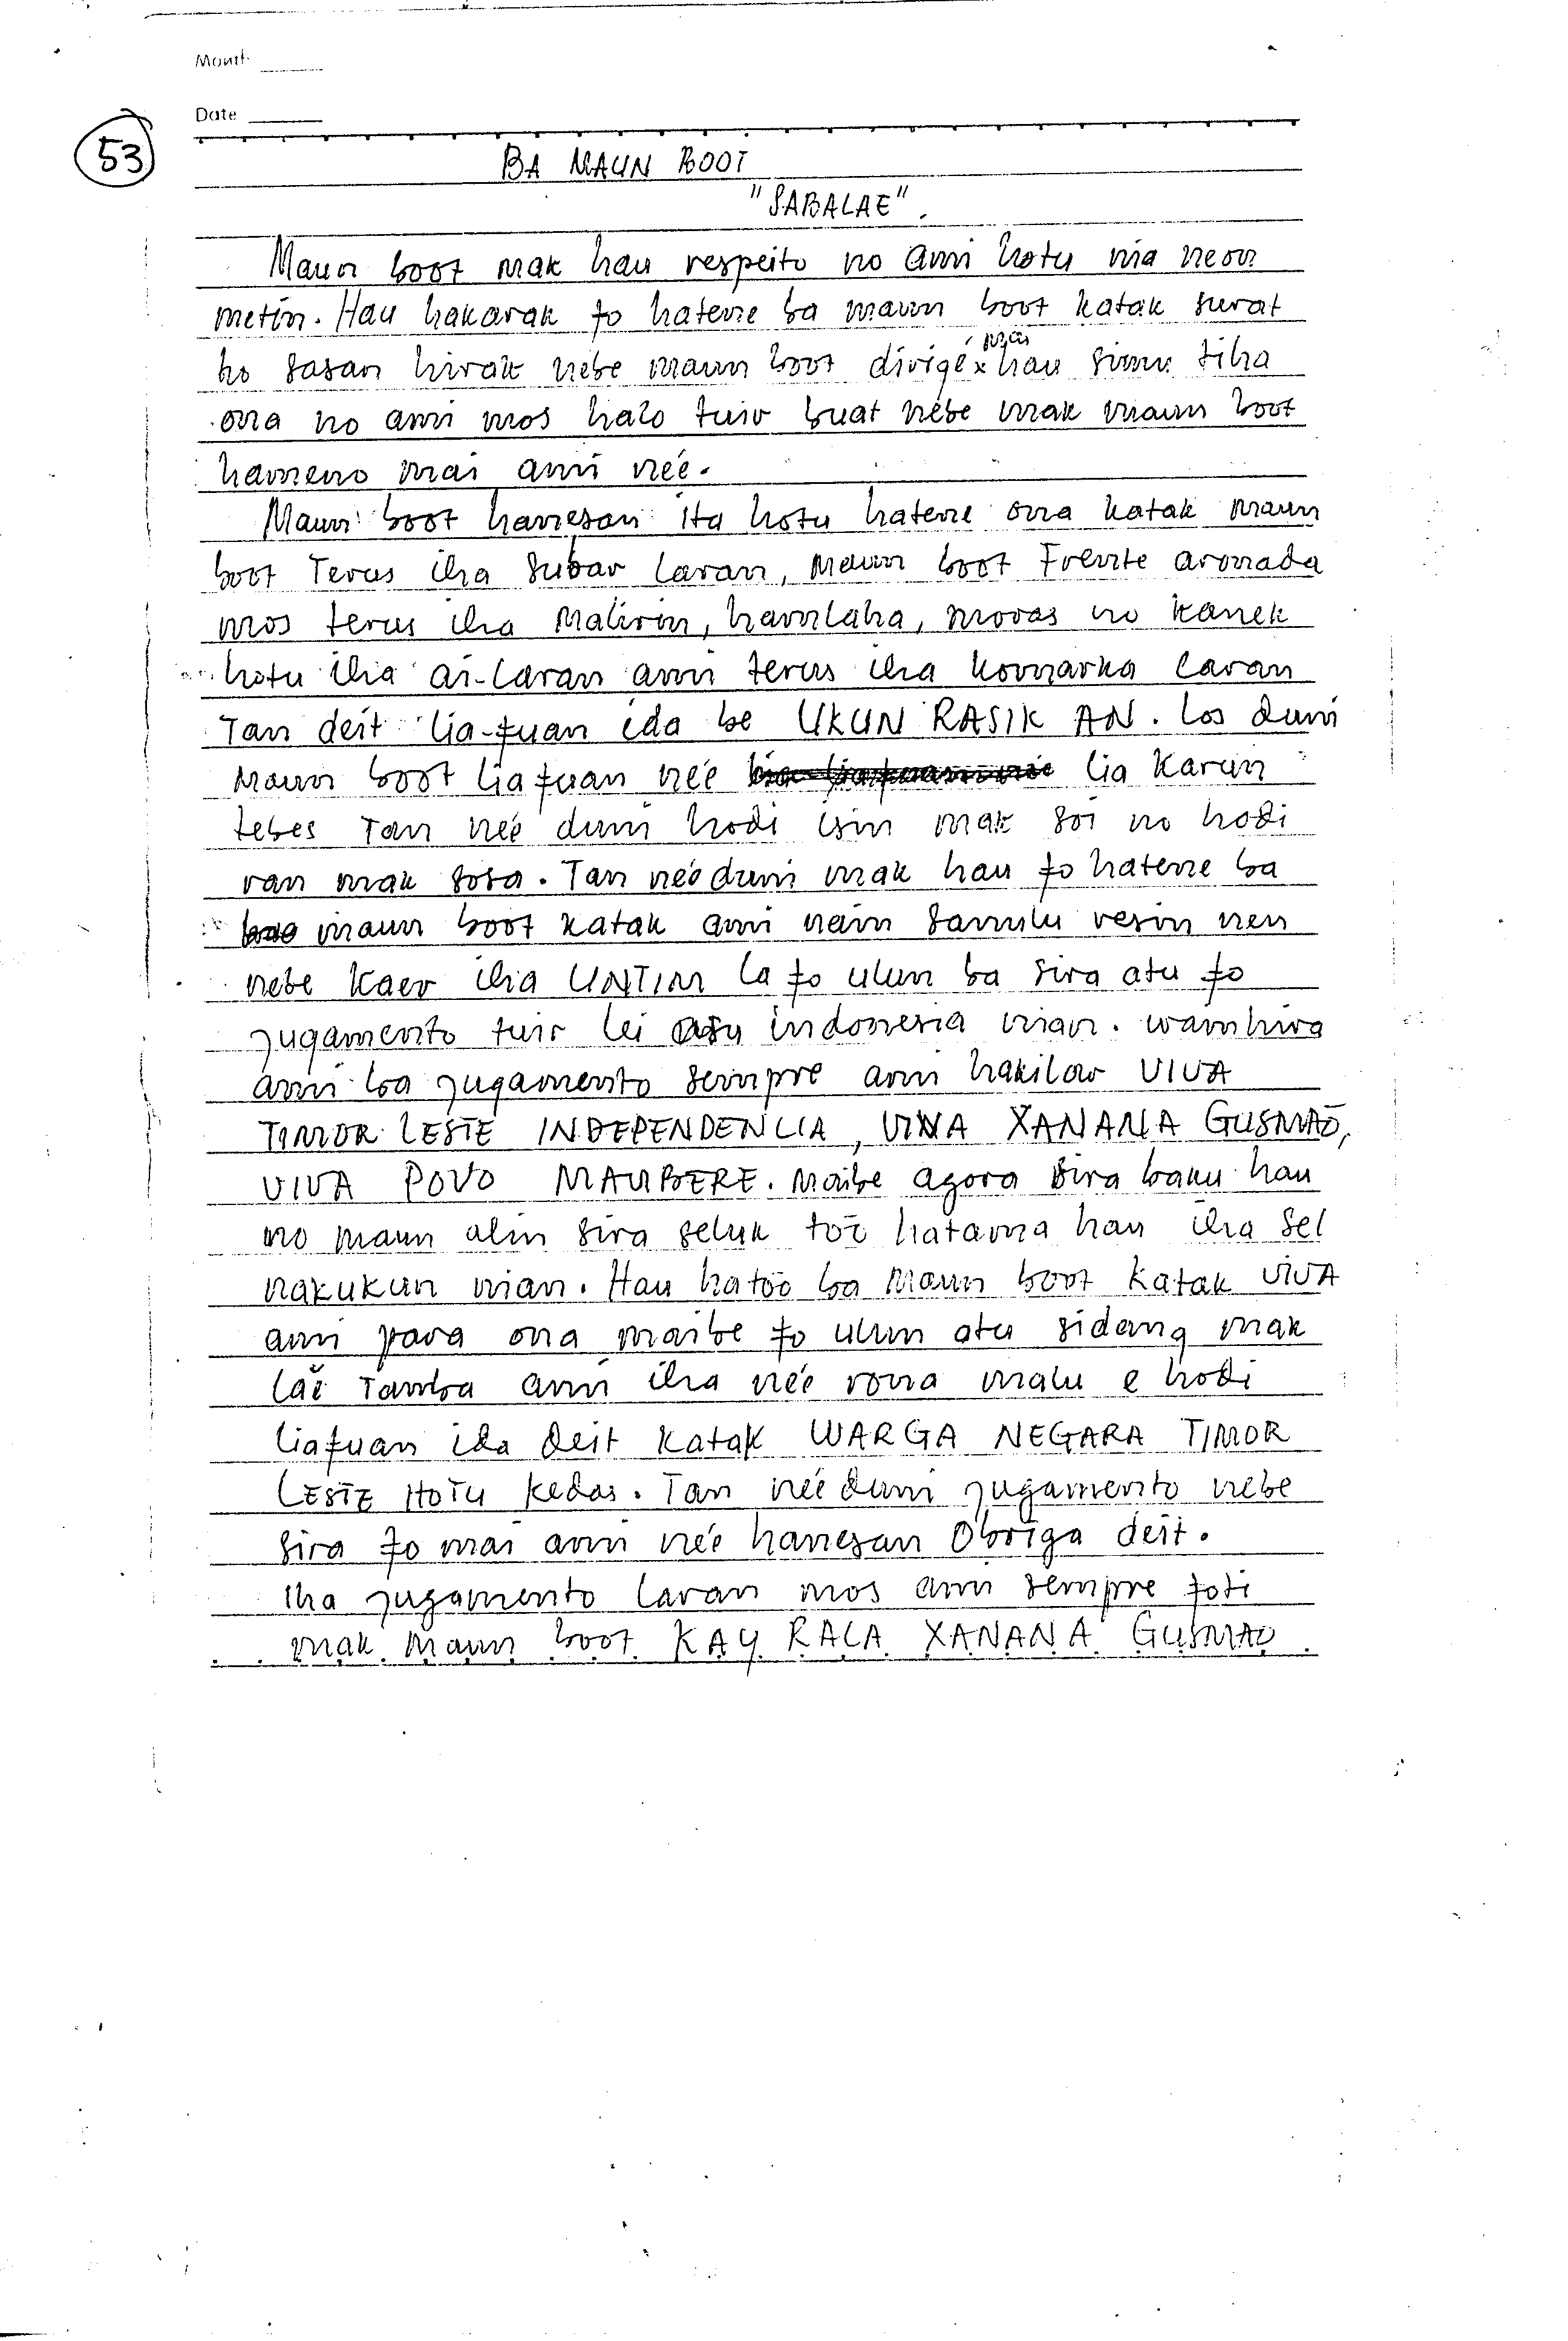 Month
Date
53
BA MAUN BOOT
"SABALAE".
Maun boot mak hau respeito no ami hotu nia neon
metin. Hau hakarak fo hatene ba maun boot katak surat
ho sasan hirak nebe maun boot dirigé mai hau simu tiha
ona no ami mos halo tuir buat nebe mak maun boot
hameno mai ami neé.
Maun boot hanesan ita hotu hatene ona katak maun
boot Terus iha subar laran, maun boot Frente armada
mos terus iha malirin, hamlaha, moras no kanek
hotu iha ai-laran ami terus iha komarka laran
Tan deit lia-fuan ida be UKUN RASIK AN. Los duni
maun boot liafuan neé lia karun
tebes Tan neé duni hodi isin mak soi no hodi
ran mak sosa. Tan neé duni mak hau fo hatene ba
maun boot katak ami nain sanulu resin nen
nebe kaer iha UNTIM la fo ulun ba sira atu fo
jugamento tuir lei indonesia nian. wainhira
ami ba jugamento sempre ami hakilar VIVA
TIMOR LESTE INDEPENDENCIA, VIVA XANANA GUSMAÕ,
VIVA POVO MAUBERE. Maibe agora sira baku hau
no maun alin sira seluk toĩ hatama hau iha sel
nakukun nian. Hau hatoo ba Maun boot katak VIVA
ami para ona maibe fo ulun atu sidang mak
laĕ Tamba ami iha neé rona malu e hodi
liafuan ida deit katak WARGA NEGARA TIMOR
LESTE HOTU kedas. Tan neé duni jugamento nebe
sira fo mai ami neé hanesan Obriga deit.
Iha jugamento laran mos ami sempre foti
mak maun boot KAY RALA XANANA GUSMAO